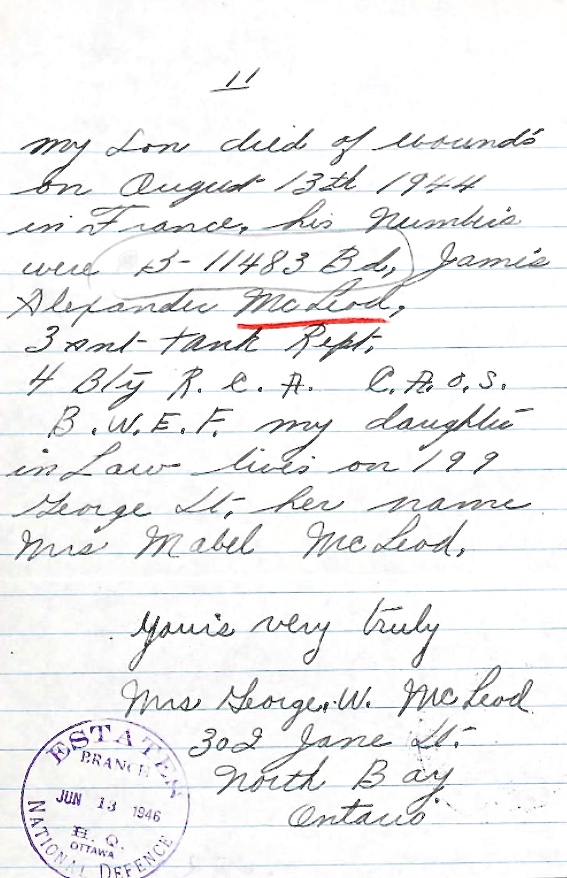 11
my son died of wounds
on August 13th 1944
in France, his numbers
were B-11483 Bd, James
Alexander McLeod,
3 Ant-tank Rept,
4 Bty R.C.A. C.A.O.S.
B.W.E.F. my daughter
in Law lives on 199
George St, her name
Mrs Mabel McLeod,
Yours very truly
Mrs George. W. McLeod
302 Jane St.
North Bay
Ontario
ESTATES
BRANCH
JUN 13 1946
H.Q.
OTTAWA
NATIONAL DEFENCE